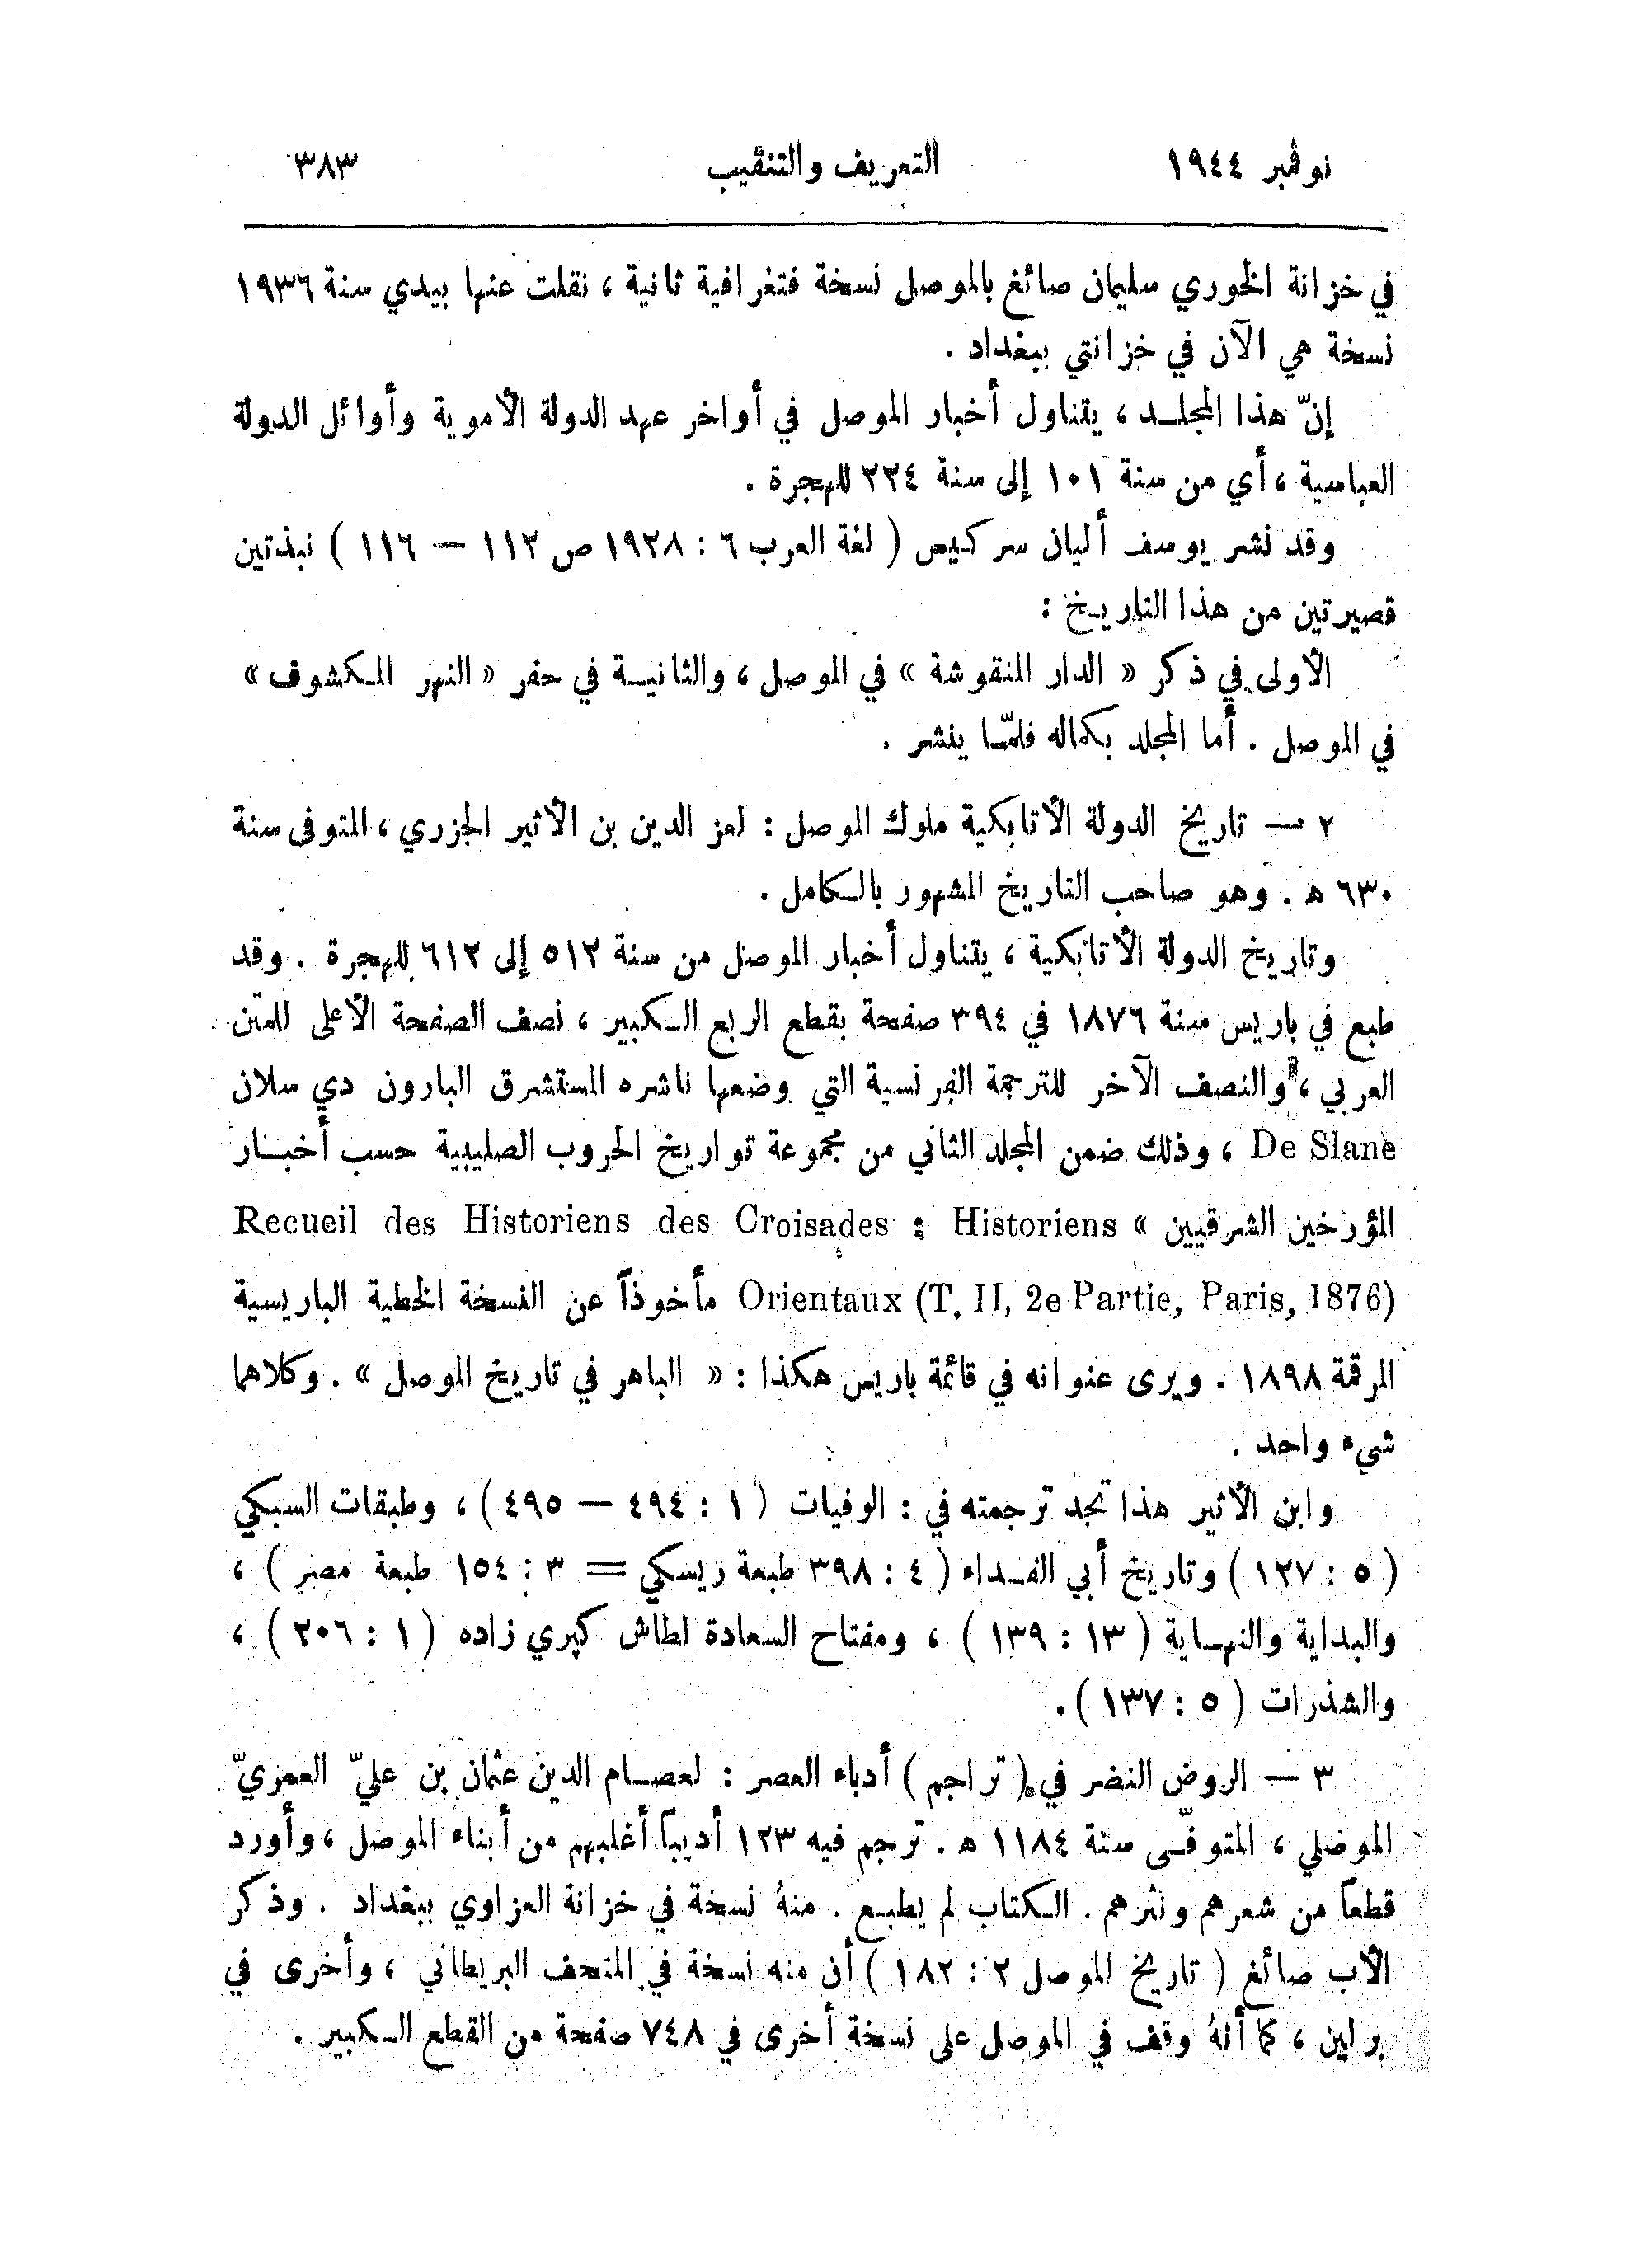 نوڤمبر ١٩٤٤ التعريف والتنقيب ٣٨٣
في خزانة الخوري سليمان صائغ بالموصل نسخة فتغرافية ثانية ، نقلت عنها بيدي سنة ١٩٣٦
نسخة هي الآن في خزانتي ببغداد .
إنّ هذا المجلـد ، يتناول أخبار الموصل في أواخر عهد الدولة الأموية وأوائل الدولة
العباسية ، أي من سنة ١٠١ إلى سنة ٢٢٤ للهجرة .
وقد نشر يوسف أليان سركيس ( لغة العرب ٦ : ١٩٢٨ ص ١١٢ — ١١٦ ) نبذتين
قصيرتين من هذا التاريخ :
الأولى في ذكر « الدار المنقوشة » في الموصل ، والثانيـة في حفر « النهر المكشوف »
في الموصل . أما المجلد بكماله فلمّـا ينشر .
٢ — تاريخ الدولة الأتابكية ملوك الموصل : لعز الدين بن الأثير الجزري ، المتوفى سنة
٦٣٠ هـ . وهو صاحب التاريخ المشهور بالكامل .
وتاريخ الدولة الأتابكية ، يتناول أخبار الموصل من سنة ٥١٢ إلى ٦١٢ للهجرة . وقد
طبع في باريس سنة ١٨٧٦ في ٣٩٤ صفحة بقطع الربع الكبير ، نصف الصفحة الأعلى للمتن
العربي ، والنصف الآخر للترجمة الفرنسية التي وضعها ناشره المستشرق البارون دي سلان
De Slane ، وذلك ضمن المجلد الثاني من مجموعة تواريخ الحروب الصليبية حسب أخبـار
المؤرخين الشرقيين » Recueil des Historiens des Croisades : Historiens
Orientaux (T. II, 2e Partie, Paris, 1876) مأخوذاً عن النسخة الخطية الباريسية
المرقمة ١٨٩٨ . ويرى عنوانه في قائمة باريس هكذا : « الباهر في تاريخ الموصل » . وكلاهما
شيء واحد .
وابن الأثير هذا تجد ترجمته في : الوفيات ( ١ : ٤٩٤ — ٤٩٥ ) ، وطبقات السبكي
( ٥ : ١٢٧ ) وتاريخ أبي الفـداء ( ٤ : ٣٩٨ طبعة ريسكي = ٣ : ١٥٤ طبعة مصر ) ،
والبداية والنهـاية ( ١٣ : ١٣٩ ) ، ومفتاح السعادة لطاش كپري زاده ( ١ : ٢٠٦ ) ،
والشذرات ( ٥ : ١٣٧ ) .
٣ — الروض النضر في ( تراجم ) أدباء العصر : لعصـام الدين عثمان بن عليّ العمريّ
الموصلي ، المتوفّـى سنة ١١٨٤ هـ . ترجم فيه ١٢٣ أديباً أغلبهم من أبناء الموصل ، وأورد
قطعاً من شعرهم ونثرهم . الكتاب لم يطبـع . منهُ نسخة في خزانة العزاوي ببغداد . وذكر
الأب صائغ ( تاريخ الموصل ٢ : ١٨٢ ) أن منه نسخة في المتحف البريطاني ، وأخرى في
برلين ، كما أنهُ وقف في الموصل على نسخة أخرى في ٧٤٨ صفحة من القطع الكبير .